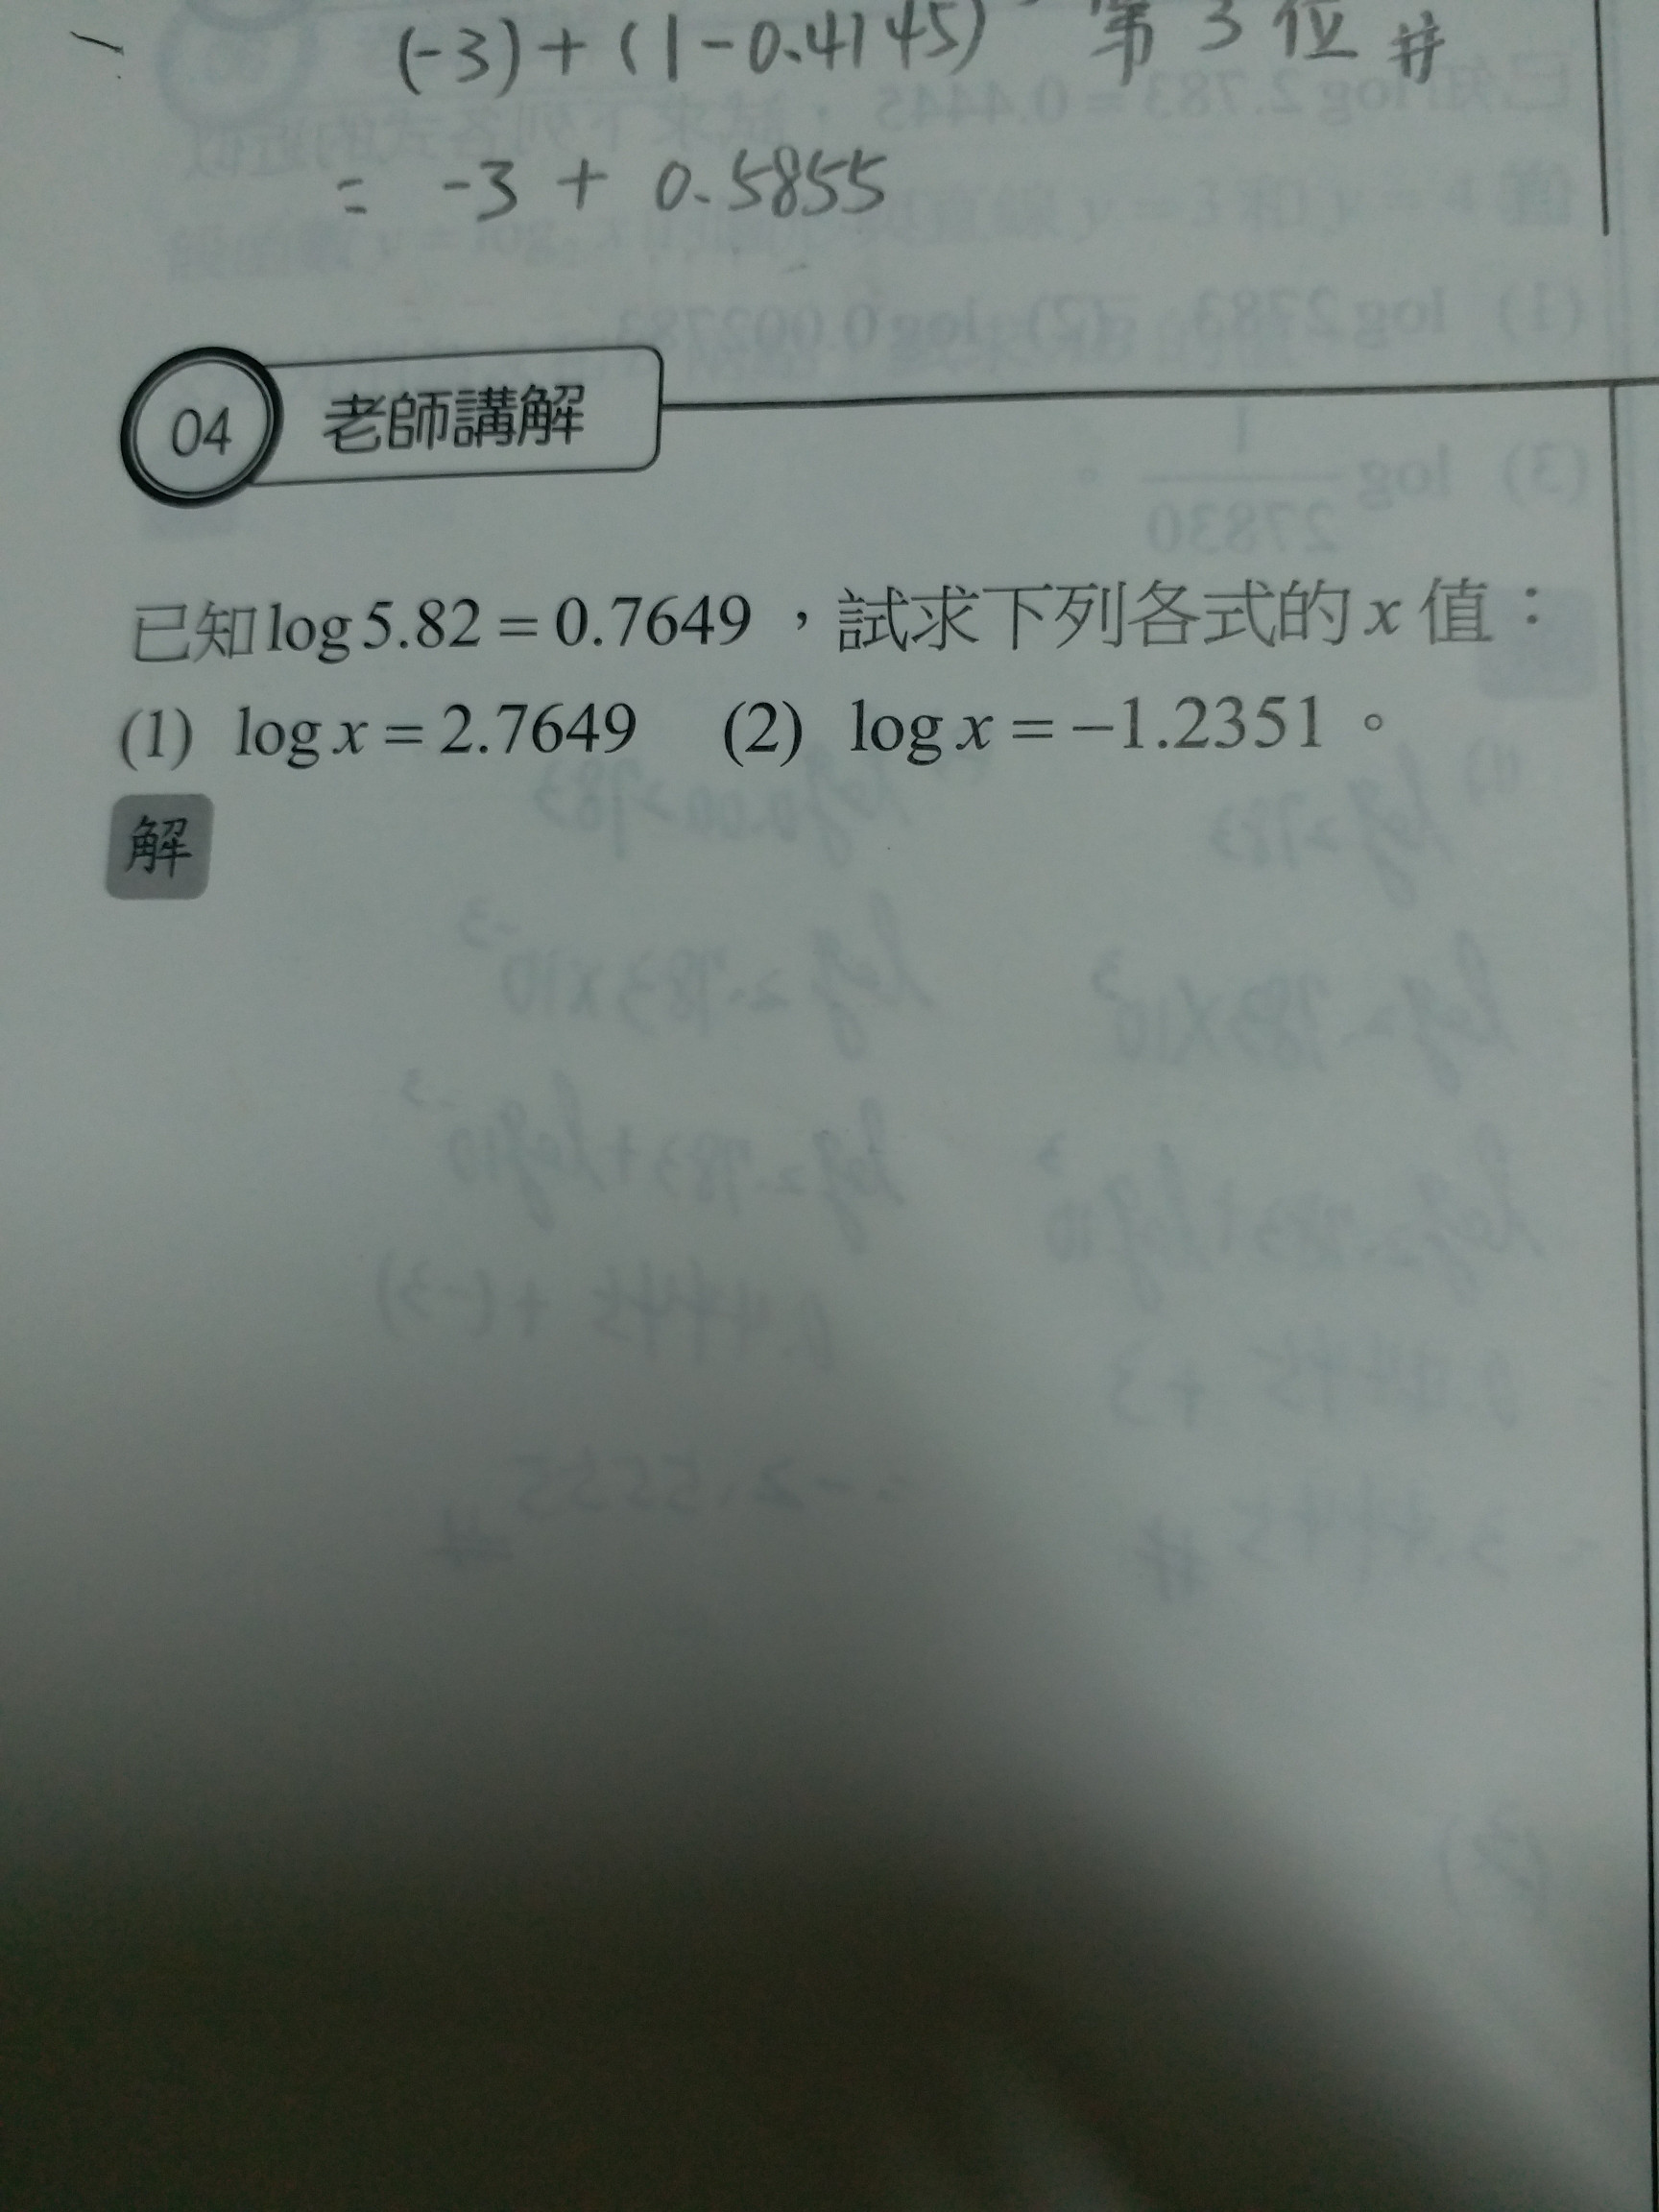 (-3)+(1-0.4145) 第3位#
= -3 + 0.5855
04 老師講解
已知log5.82=0.7649，試求下列各式的x值：
(1) log x = 2.7649 (2) log x = −1.2351。
解